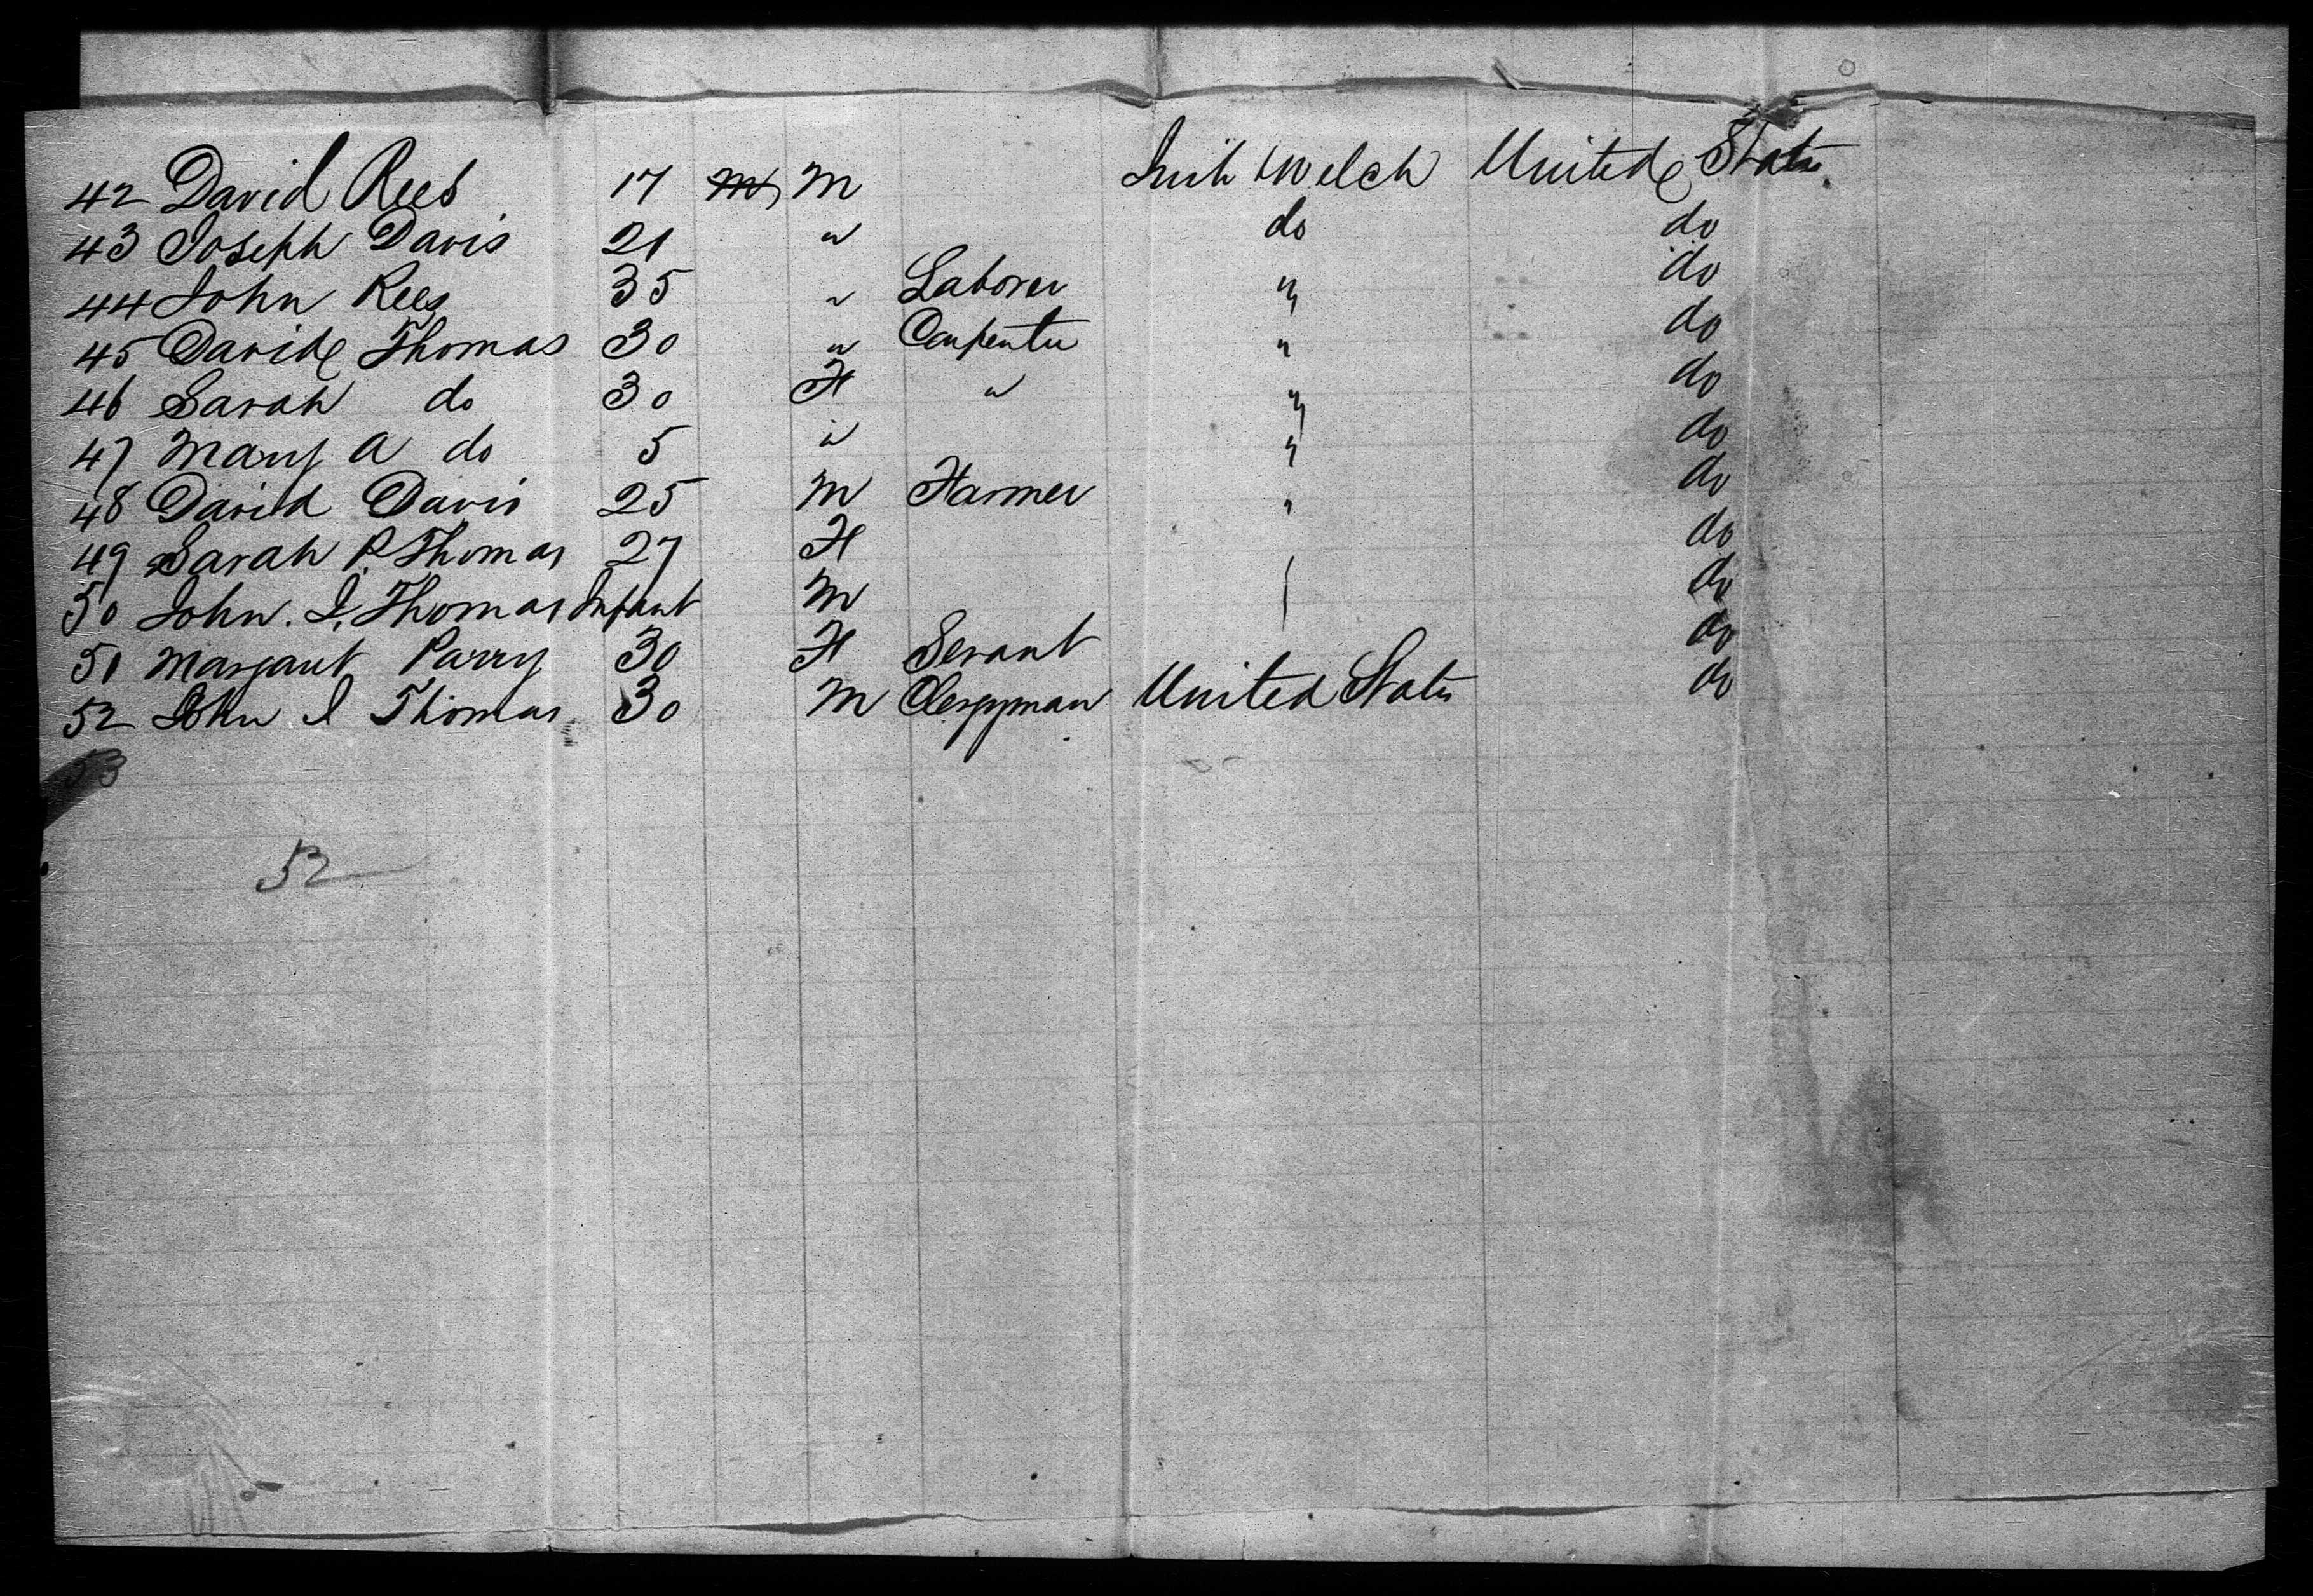 42 David Rees 17 M M Welch United States
43 Joseph Davis 21 " do do
44 John Rees 35 " Laborer " do
45 David Thomas 30 " Carpenter " do
46 Sarah do 30 F " " do
47 Mary A do 5 " " do
48 David Davis 25 M Farmer " do
49 Sarah P. Thomas 27 F do
50 John. I. Thomas Infant M do
51 Margaret Parry 30 F Servant do
52 John I Thomas 30 M Clergyman United States do
53
52